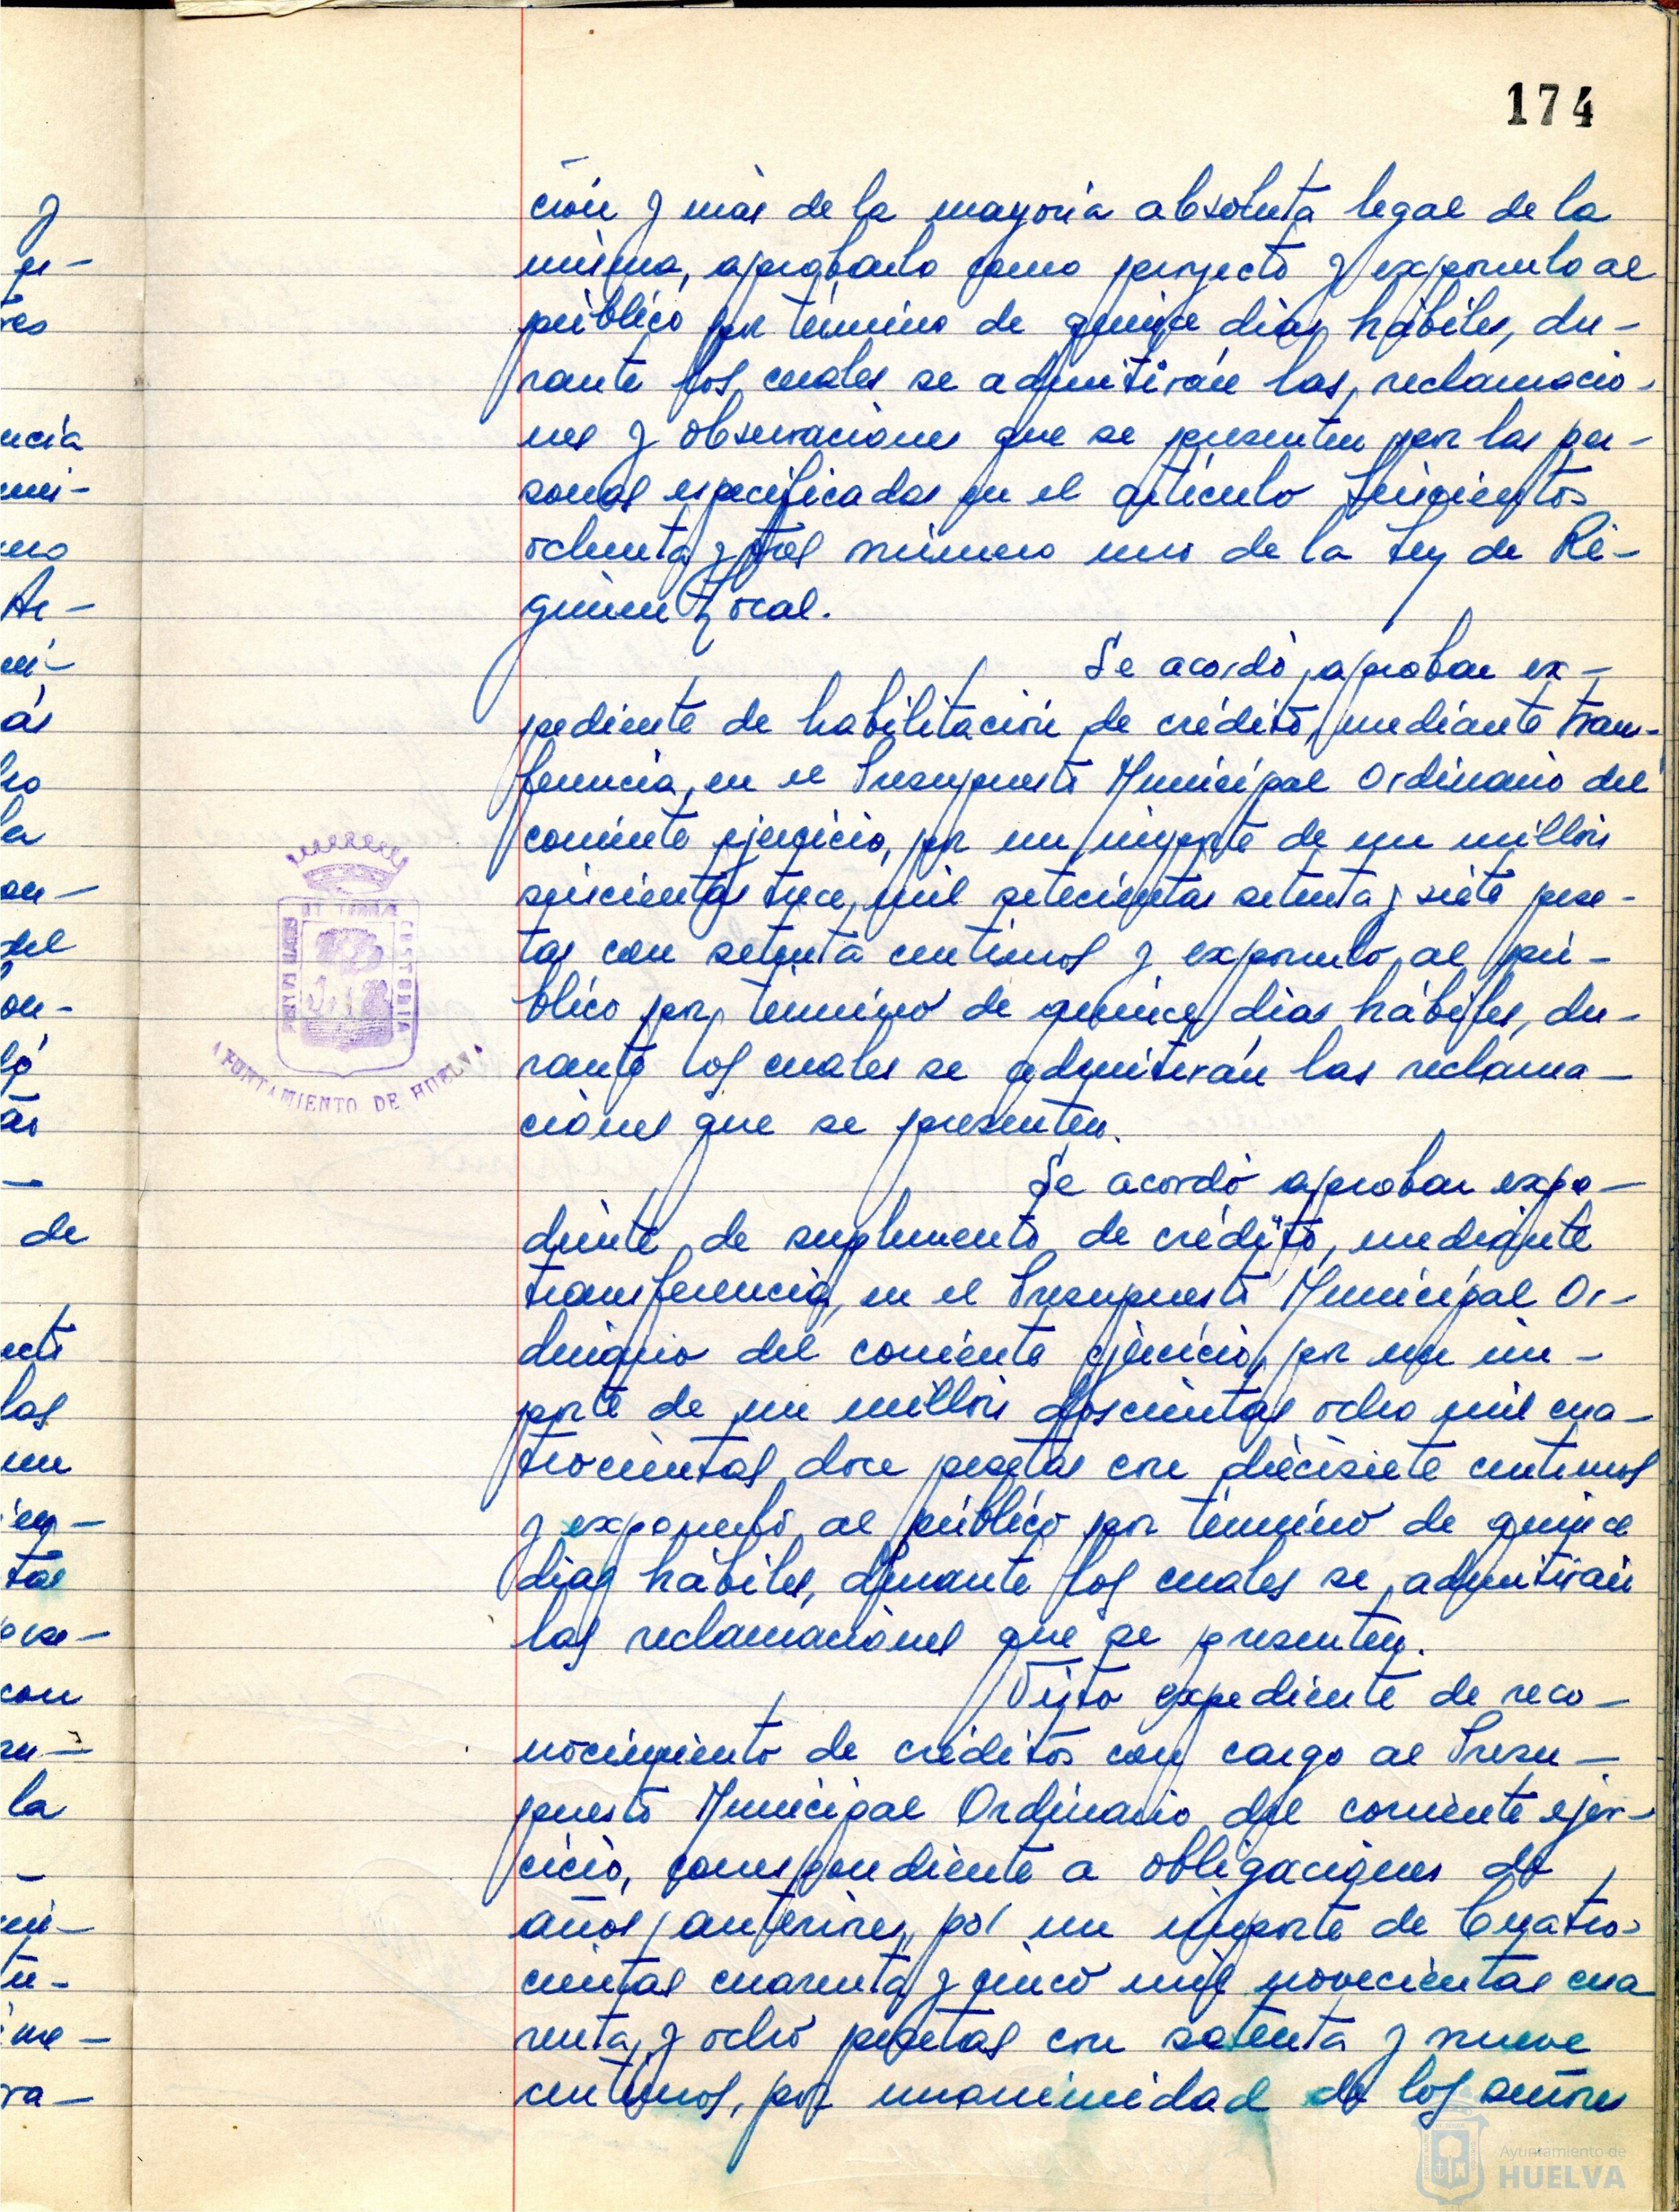 174
ción y más de la mayoría absoluta legal de la
misma, aprobarlo como proyecto y exponerlo al
público por término de quince dias hábiles, du-
rante los cuales se admitirán las reclamacio-
nes y observaciones que se presenten por las per-
sonas especificadas en el artículo seiscientos
ochenta y tres número uno de la Ley de Ré-
gimen Local.
Se acordó aprobar ex-
pediente de habilitación de crédito, mediante trans-
ferencia, en el Presupuesto Municipal Ordinario del
corriente ejercicio, por un importe de un millón
seiscientas trece mil setecientas setenta y siete pese-
tas con setenta centimos y exponerlo al pú-
blico por término de quince dias hábiles, du-
rante los cuales se admitirán las reclama-
ciones que se presenten.
Se acordó aprobar expe-
diente de suplemento de crédito, mediante
transferencia, en el Presupuesto Municipal Or-
dinario del corriente ejercicio, por un im-
porte de un millón doscientas ocho mil cua-
trocientas doce pesetas con diecisiete centimos
y exponerlo al público por término de quince
dias hábiles, durante los cuales se admitirán
las reclamaciones que se presenten.
Visto expediente de reco-
nocimiento de créditos con cargo al Presu-
puesto Municipal Ordinario del corriente ejer-
cicio, correspondiente a obligaciones de
años anteriores, por un importe de Cuatro-
cientas cuarenta y cinco mil novecientas cua
renta y ocho pesetas con setenta y nueve
centimos, por unanimidad de los señores
AYUNTAMIENTO DE HUELVA
Ayuntamiento de
HUELVA